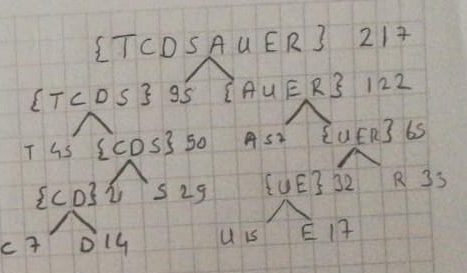 {TCDSAUER} 217
{TCDS} 95 {AUER} 122
T 45 {CDS} 50 A 57 {UER} 65
{CD} 21 S 29 {UE} 32 R 33
C 7 D 14 U 15 E 17